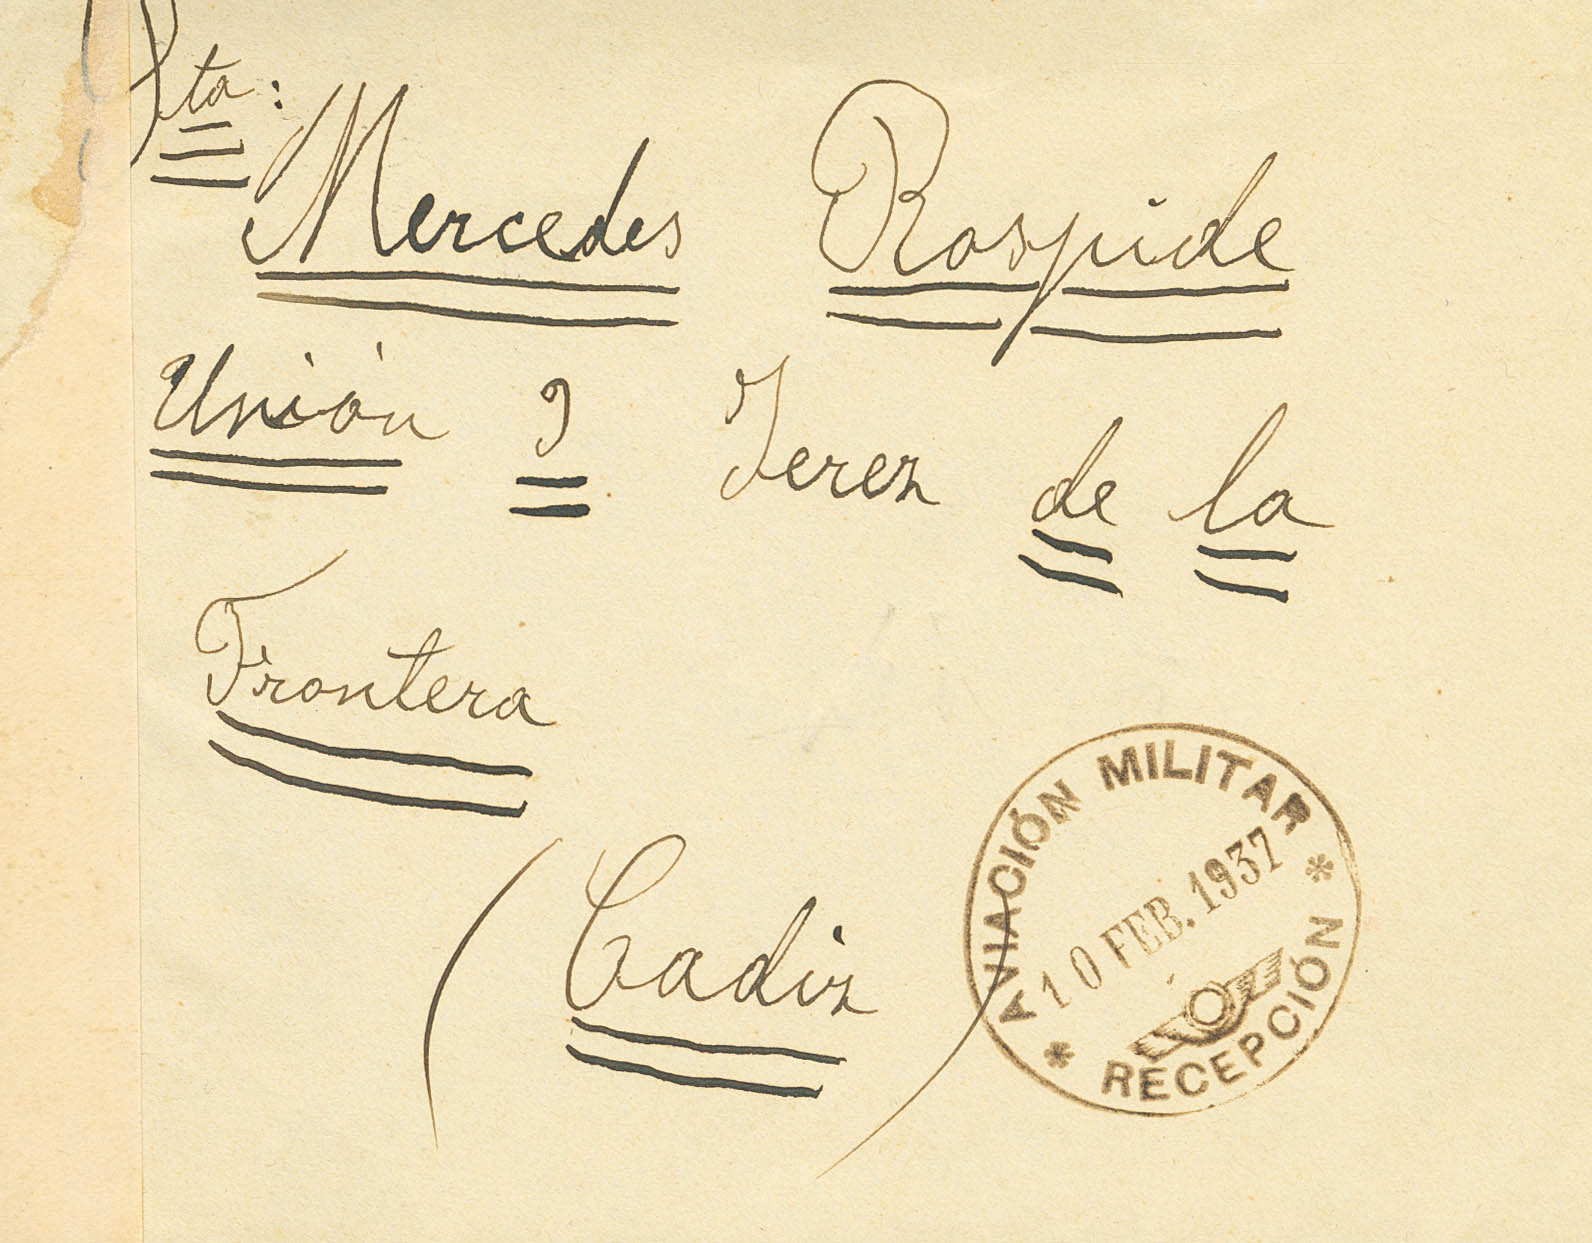 Sta:
Mercedes Rospide
Unión 9 Jerez de la
Frontera
(Cadiz)
AVIACIÓN MILITAR
10 FEB. 1937
RECEPCIÓN